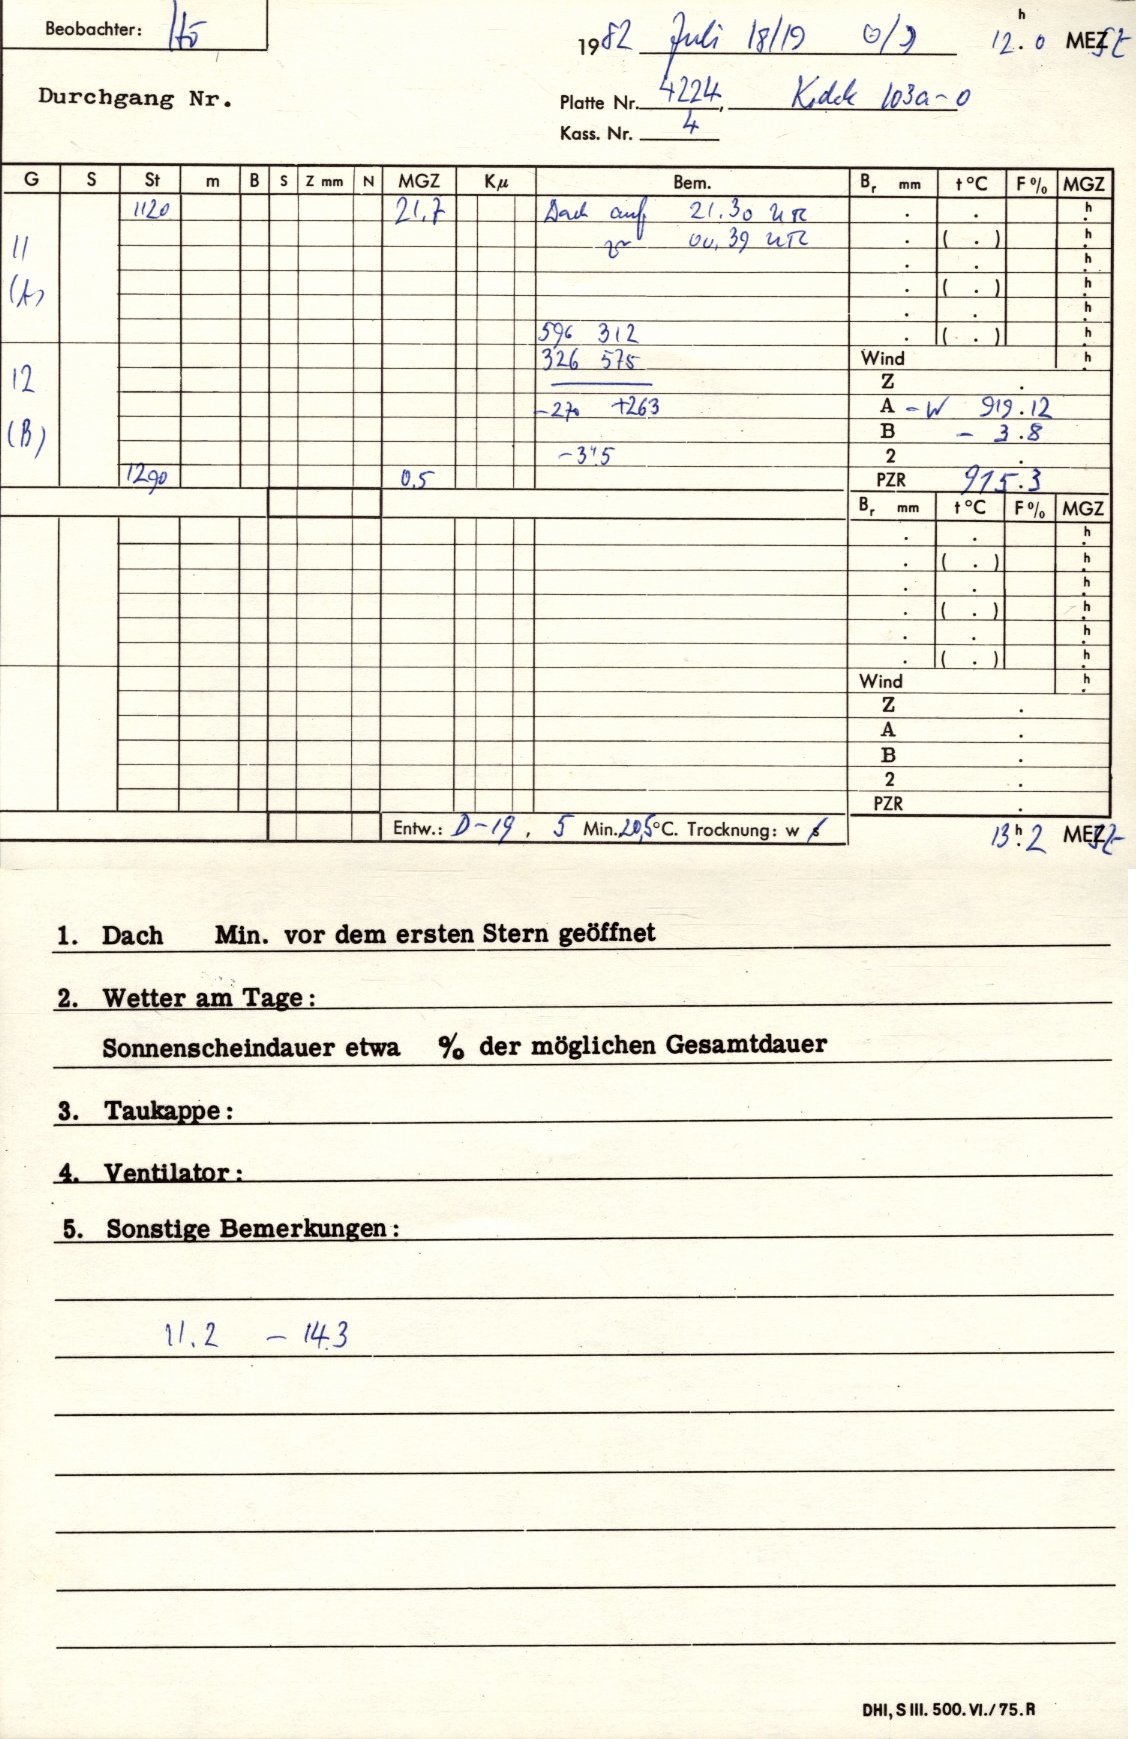 Beobachter: Hö
1982 Juli 18/19 ☉/☽ 12.h0 MEZ SZ
Durchgang Nr.
Platte Nr. 4224, Kodak 103a-O
Kass. Nr. 4
G S St m B S Z mm N MGZ Kμ Bem. Br mm t°C F% MGZ
1120 21,7 Dach auf 21.30 . . h
11 zu 00,39 . ( . ) h
. . h
(A) . ( . ) h
. . h
596 312 . ( . ) h
326 575 Wind h
12 Z .
-270 +263 A - W 919.12
(B) B - 3.8
-3"5 2 .
1290 0.5 PZR 915.3
Br mm t°C F% MGZ
. . h
. ( . ) h
. . h
. ( . ) h
. . h
. ( . ) h
Wind h
Z .
A .
B .
2 .
PZR .
Entw.: D-19, 5 Min. 20,5°C. Trocknung: w s
13.h2 MEZ SZ
1. Dach Min. vor dem ersten Stern geöffnet
2. Wetter am Tage:
Sonnenscheindauer etwa % der möglichen Gesamtdauer
3. Taukappe:
4. Ventilator:
5. Sonstige Bemerkungen:
11.2 - 14.3
DHI, S III. 500. VI./75. R